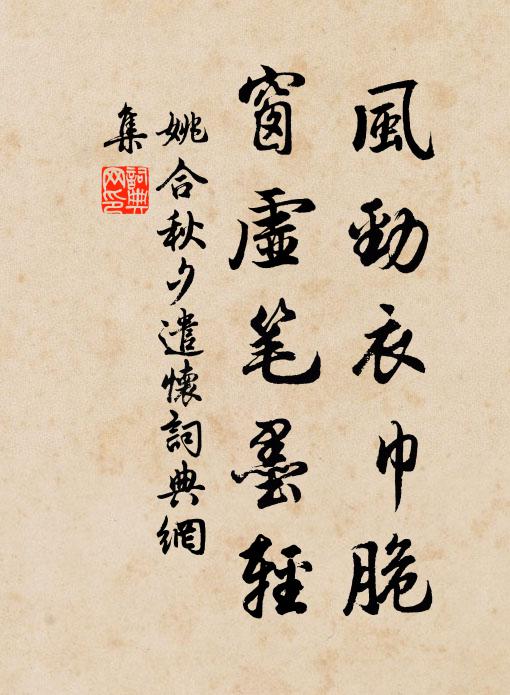 風勁衣巾脆
窗虛笔墨輕
姚合秋夕遣懷詞典網
集
詞典网印